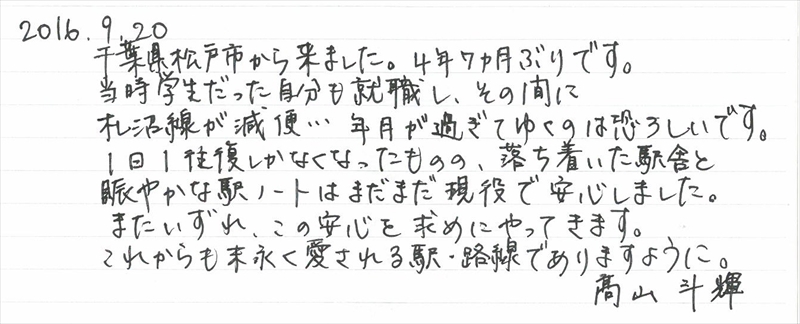 2016.9.20
千葉県松戸市から来ました。4年7ヵ月ぶりです。
当時学生だった自分も就職し、その間に
札沼線が減便… 年月が過ぎてゆくのは恐ろしいです。
1日1往復しかなくなったものの、落ち着いた駅舎と
賑やかな駅ノートはまだまだ現役で安心しました。
またいずれ、この安心を求めにやってきます。
これからも末永く愛される駅・路線でありますように。
髙山 斗輝